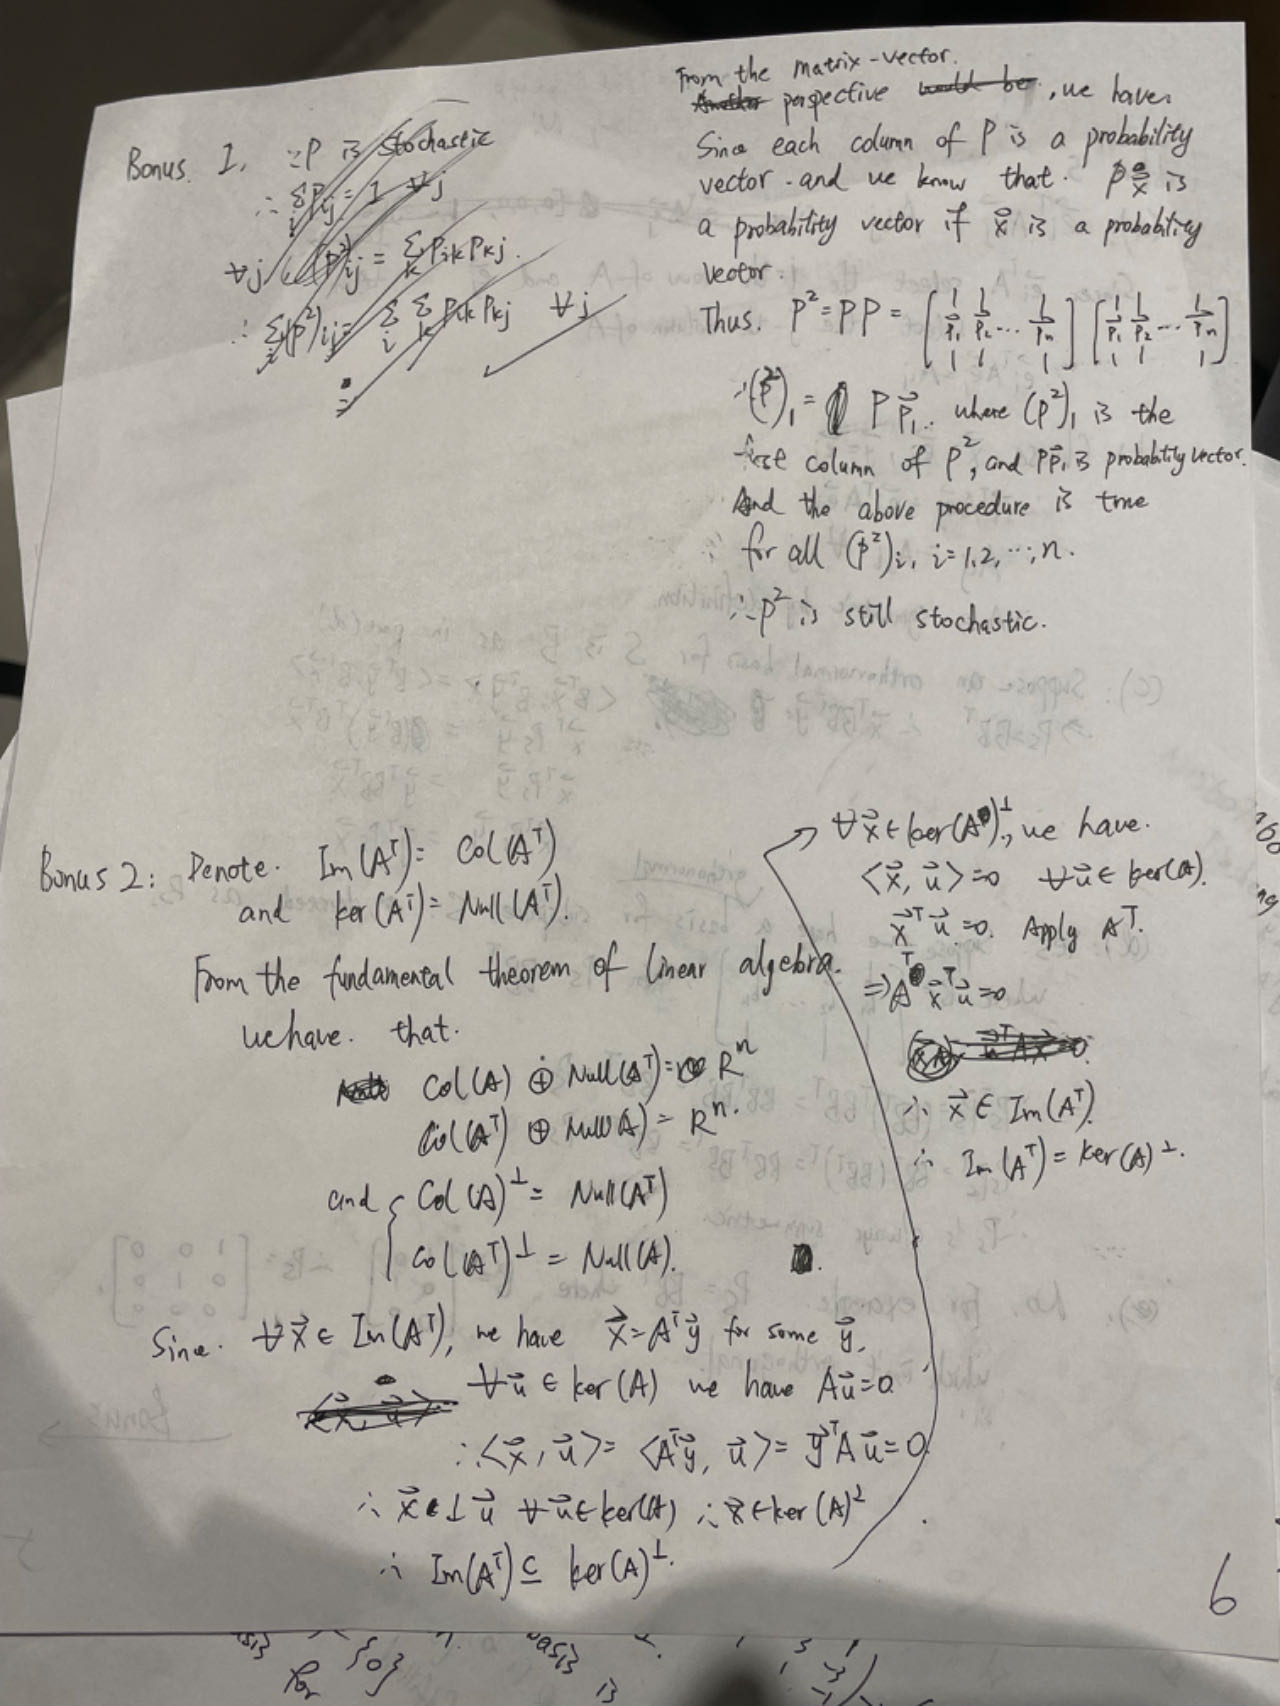 Bonus. 1. ∵P is stochastic
∴ Σ_i P_ij = 1 ∀j
∀j (P²)_ij = Σ_k P_ik P_kj.
∴ Σ_i (P²)_ij = Σ_i Σ_k P_ik P_kj ∀j
From the matrix-vector.
Another perspective would be, we have
Since each column of P is a probability
vector. and we know that. Px⃗ is
a probability vector if x⃗ is a probability
vector.
Thus. P² = PP = [p⃗₁ p⃗₂ ... p⃗n] [p⃗₁ p⃗₂ ... p⃗n]
∴(P²)₁ = P p⃗₁. where (P²)₁ is the
first column of P², and Pp⃗₁ is probability vector.
And the above procedure is true
for all (P²)i, i=1,2,...,n.
∴P² is still stochastic.
Bonus 2: Denote. Im(Aᵀ) = Col(Aᵀ)
and ker(Aᵀ) = Null(Aᵀ).
From the fundamental theorem of linear algebra.
we have. that.
Col(A) ⊕ Null(Aᵀ) = Rⁿ
Col(Aᵀ) ⊕ Null(A) = Rⁿ.
and { Col(A)⊥ = Null(Aᵀ)
Col(Aᵀ)⊥ = Null(A).
Since. ∀x⃗ ∈ Im(Aᵀ), we have x⃗ = Aᵀy⃗ for some y⃗.
∀u⃗ ∈ ker(A) we have Au⃗ = 0
∴<x⃗, u⃗> = <Aᵀy⃗, u⃗> = y⃗ᵀAu⃗ = 0
∴ x⃗ ⊥ u⃗ ∀u⃗ ∈ ker(A) ∴ x⃗ ∈ ker(A)⊥
∴ Im(Aᵀ) ⊆ ker(A)⊥.
∀x⃗ ∈ ker(A)⊥, we have.
<x⃗, u⃗> = 0 ∀u⃗ ∈ ker(A).
x⃗ᵀu⃗ = 0. Apply Aᵀ.
⇒ Aᵀ x⃗ᵀu⃗ = 0
∴ x⃗ ∈ Im(Aᵀ).
∴ Im(Aᵀ) = ker(A)⊥.
6